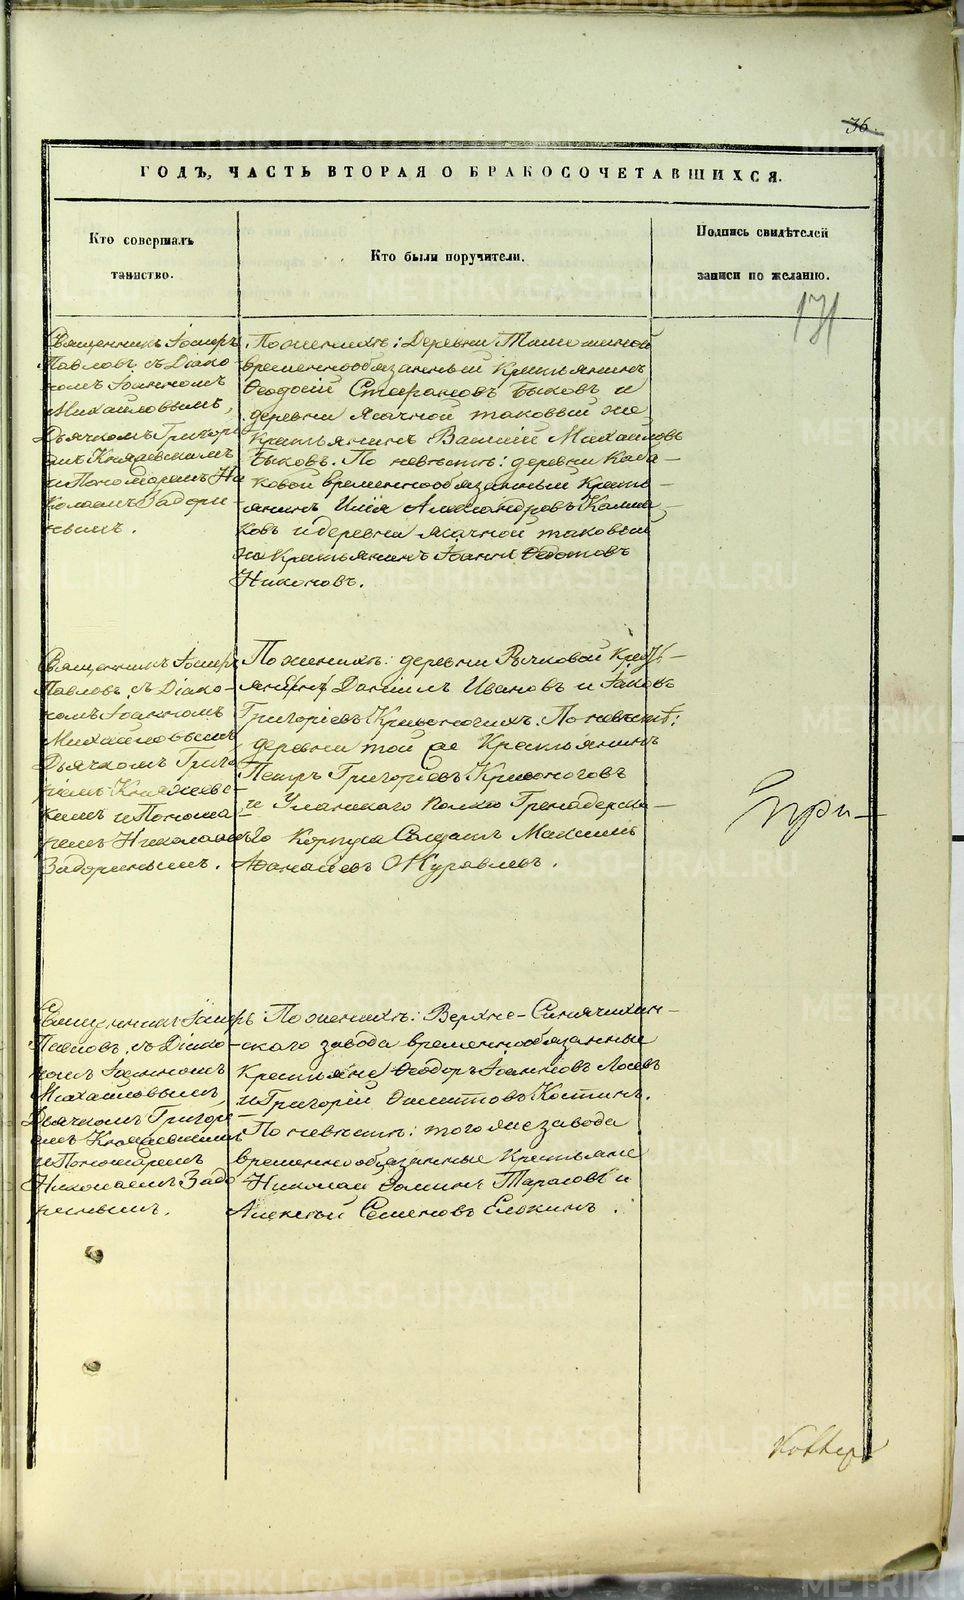 36
ГОДЪ, ЧАСТЬ ВТОРАЯ О БРАКОСОЧЕТАВШИХСЯ.
Кто совершалъ
таинство.
Кто были поручители.
Подпись свидѣтелей
записи по желанію.
171
Священникъ Іосифъ
Павловъ, съ Діако-
номъ Іоанномъ
Михайловымъ,
Дьячкомъ Григорі-
емъ Княжевскимъ
и Пономаремъ Ни
колаемъ Задори
нымъ.
По женихѣ: Деревни
временнообязанный Крестьянинъ
Ѳеодосій Стефановъ Быковъ и
деревни Ясачной таковый же
Крестьянинъ Василій Михайловъ
Быковъ. По невѣстѣ: деревни Каба-
ковой временнообязанный Кресть-
янинъ Илія Александровъ
и деревни Ясачной таковый
же Крестьянинъ Іоаннъ Ѳедотовъ
Никоновъ.
Священникъ Іосифъ
Павловъ, съ Діако-
номъ Іоанномъ
Михайловымъ
Дьячкомъ Григо
ріемъ Княжевс-
кимъ и Понома-
ремъ Николаемъ
Задоринымъ.
По женихѣ: деревни Рычковой Кресть-
Даніилъ Ивановъ и Іаковъ
Григоріевъ Кривоногихъ. По невѣстѣ:
деревни той же Крестьянинъ
Петръ Григоріевъ Кривоноговъ
и Уланскаго полка Гренадерска-
го Корпуса Солдатъ Максимъ
Аѳанасіевъ Журавлевъ.
При-
Священникъ Іосифъ
Павловъ, съ Діако-
номъ Іоанномъ
Михайловымъ,
Дьячкомъ Григорі-
емъ Княжевскимъ
и Пономаремъ
Николаемъ Задо
ринымъ.
По женихѣ: Верхне-Синячихин-
скаго завода временнообязанные
Крестьяне Ѳеодоръ Іоанновъ Лосевъ
и Григорій Костинъ.
По невѣстѣ: того же завода
временнообязанные Крестьяне
Николай Ѳоминъ Тарасовъ и
Алексѣй Семеновъ Елохинъ.
METRIKI.GASO-URAL.RU